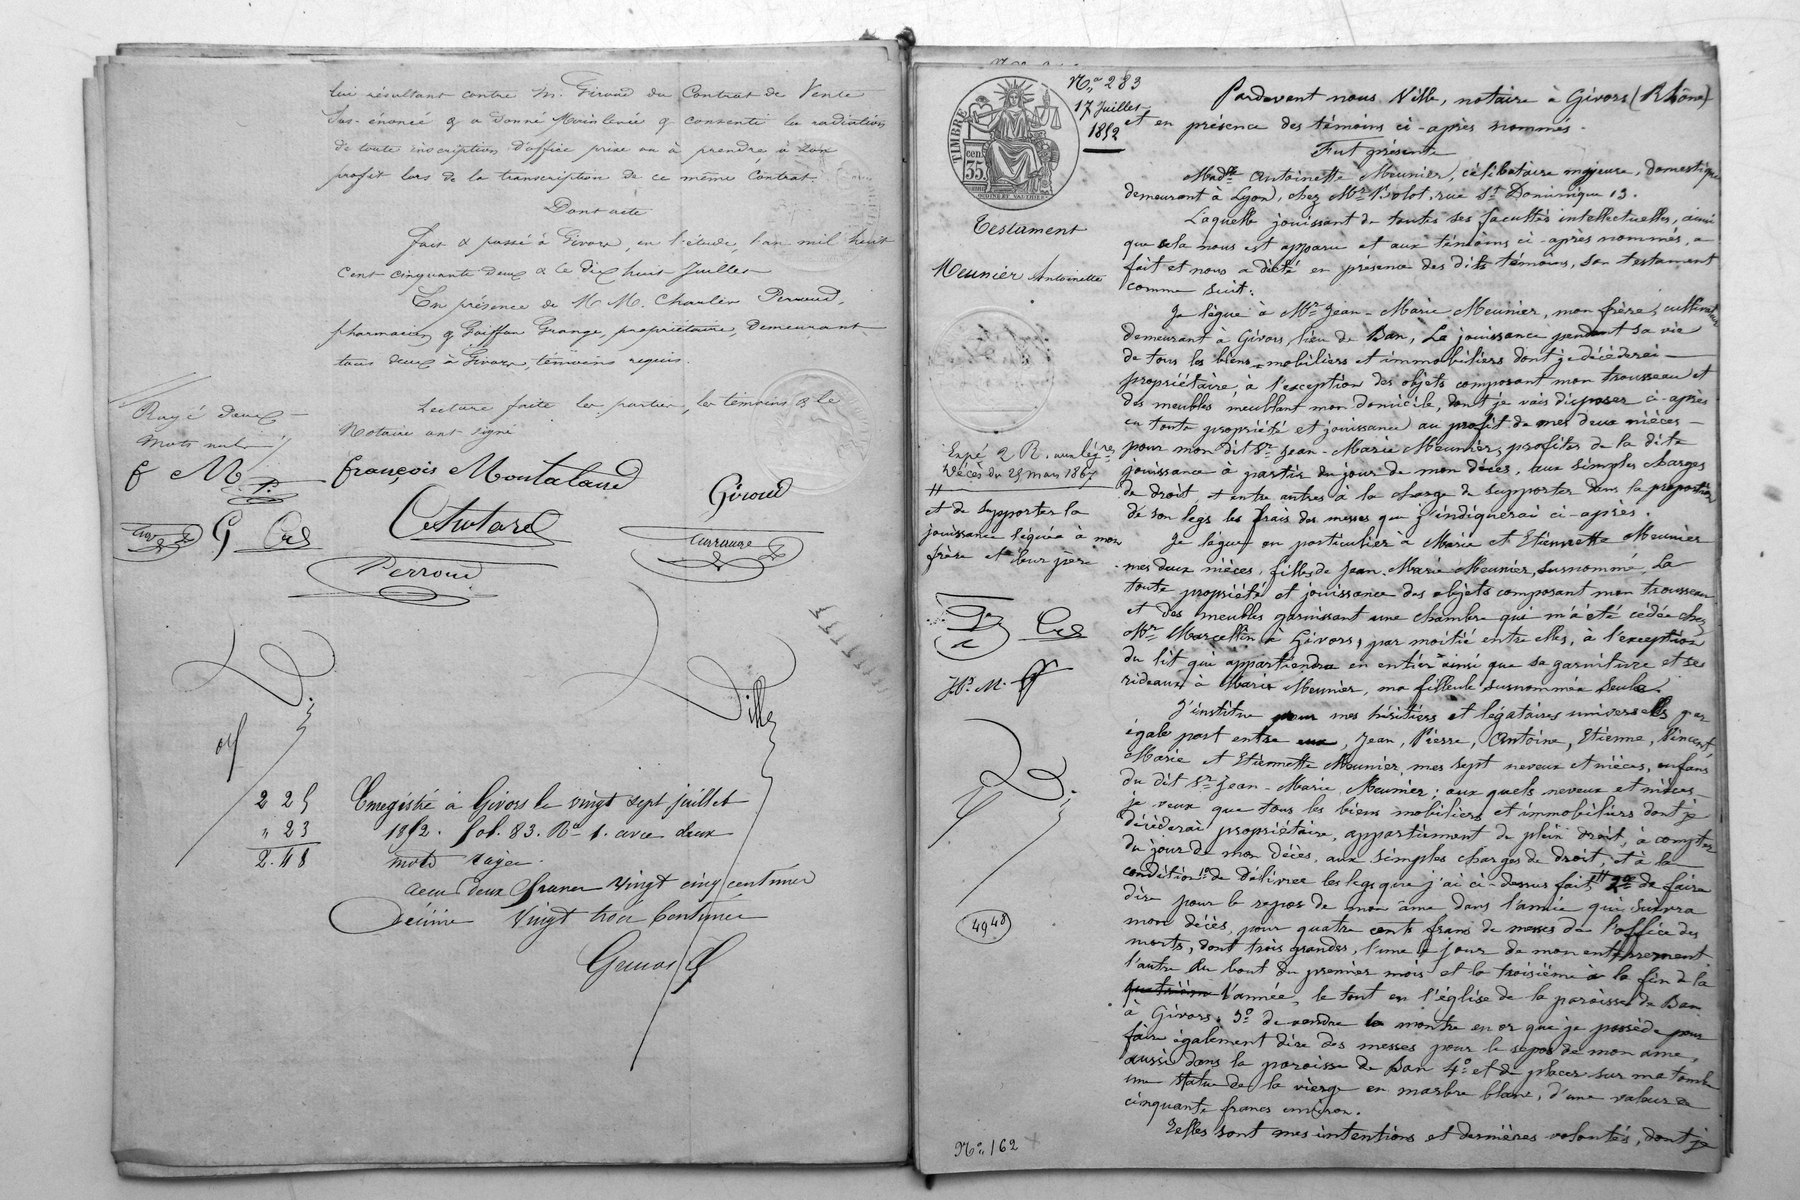 lui résultant contre M. Giroud du Contrat de Vente
sus-énoncé & a donné Mainlevée & consenti la radiation
de toute inscription d'office prise ou à prendre à son
profit lors de la transcription de ce même Contrat.
Dont acte
Fait & passé à Givors, en l'étude, l'an mil huit
cent cinquante deux & le dix huit Juillet
En présence de M M. Charles Perroud,
pharmacien & Goiffon Grange, propriétaire, demeurant
tous deux à Givors, témoins requis.
Lecture faite les parties, les témoins & le
Notaire ont signé
Rayé deux
mots nuls
f M
P.
françois Montaland
Giroud
G
Perroud
Ville
2 25
" 23
2.48
Enregistré à Givors le vingt sept juillet
1852. fol. 83. Ro 1. avec deux
mots rayés.
reçu deux francs vingt cinq centimes
Décime vingt trois Centimes
No 283
17 Juillet
1852
TIMBRE
35
cen.
Testament
Meunier Antoinette
Expé 2 R. aux légres
Décès du 25 mars 1867
et de supporter la
jouissance léguée à mon
frère et leur père
J.P. M.
4948
No 162
Pardevant nous Ville, notaire à Givors (Rhône)
et en présence des témoins ci-après nommés.
Fut présente
Madlle Antoinette Meunier, célibataire majeure, domestique
demeurant à Lyon, chez Mr Volot, rue St Dominique 13.
Laquelle jouissant de toutes ses facultés intellectuelles, ainsi
que cela nous est apparu et aux témoins ci-après nommés, a
fait et nous a dicté en présence des dits témoins, son testament
comme suit:
Je lègue à Mr Jean-Marie Meunier, mon frère, cultivateur
demeurant à Givors, lieu de Ban, La jouissance pendant sa vie
de tous les biens mobiliers et immobiliers dont je décèderai
propriétaire, à l'exception des objets composant mon trousseau et
des meubles meublant mon domicile, dont je vais disposer ci-après
en toute propriété et jouissance au profit de mes deux nièces
pour mon dit Sr Jean-Marie Meunier, profiter de la dite
jouissance à partir du jour de mon décès, aux simples charges
de droit, et entre autres à la charge de supporter dans la proportion
de son legs les frais des messes que j'indiquerai ci-après.
Je lègue en particulier à Marie et Etiennette Meunier
mes deux nièces, filles de Jean-Marie Meunier, susnommé, La
toute propriété et jouissance des objets composant mon trousseau
et des meubles garnissant une chambre qui m'a été cédée chez
Mr Marcellin à Givors, par moitié entre elles, à l'exception
du lit qui appartiendra en entier ainsi que sa garniture et ses
rideaux à Marie Meunier, ma filleule susnommée seule.
J'institue pour mes héritiers et légataires universels par
égale part entre eux, Jean, Pierre, Antoine, Etienne, Vincent,
Marie et Etiennette Meunier, mes sept neveux et nièces, enfans
du dit Sr Jean-Marie Meunier; aux quels neveux et nièces
je veux que tous les biens mobiliers et immobiliers dont je
décèderai propriétaire, appartiennent de plein droit, à compter
du jour de mon décès, aux simples charges de droit, et à la
condition 1o de délivrer les legs que j'ai ci-dessus fait, 2o de faire
dire pour le repos de mon âme dans l'année qui suivra
mon décès, pour quatre cents francs de messes de l'office des
morts, dont trois grandes, l'une le jour de mon enterrement
l'autre au bout du premier mois et la troisième à la fin de la
quatrième l'année, le tout en l'église de la paroisse de Ban
à Givors; 3o de vendre la montre en or que je possède pour
faire également dire des messes pour le repos de mon âme,
aussi dans la paroisse de Ban 4o et de placer sur ma tombe
une statue de la vierge en marbre blanc, d'une valeur de
cinquante francs environ.
Telles sont mes intentions et dernières volontés, dont je